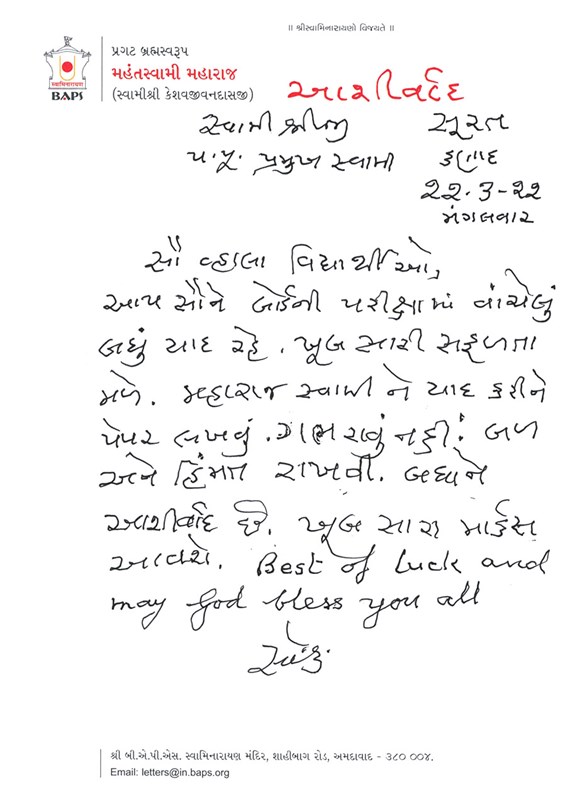 ॥ શ્રીસ્વામિનારાયણો વિજયતે ॥
પ્રગટ બ્રહ્મસ્વરૂપ
મહંતસ્વામી મહારાજ
(સ્વામીશ્રી કેશવજીવનદાસજી)
સ્વામિનારાયણ
BAPS
આશીર્વાદ
સ્વામી શ્રીજી સુરત
પ.પૂ. પ્રમુખ સ્વામી કણાદ
૨૨.૩-૨૨
મંગલવાર
સૌ વ્હાલા વિદ્યાર્થીઓ,
આપ સૌને બોર્ડની પરીક્ષામાં વાંચેલું
બધું યાદ રહે. ખૂબ સારી સફળતા
મળે. મહારાજ સ્વામી ને યાદ કરીને
પેપર લખવું. ગભરાવું નહી. બળ
અને હિંમત રાખવી. બધાને
આશીર્વાદ છે. ખૂબ સારા માર્કસ
આવશે. Best of luck and
may God bless you all
શ્રી બી.એ.પી.એસ. સ્વામિનારાયણ મંદિર, શાહીબાગ રોડ, અમદાવાદ - ૩૮૦ ૦૦૪.
Email: letters@in.baps.org